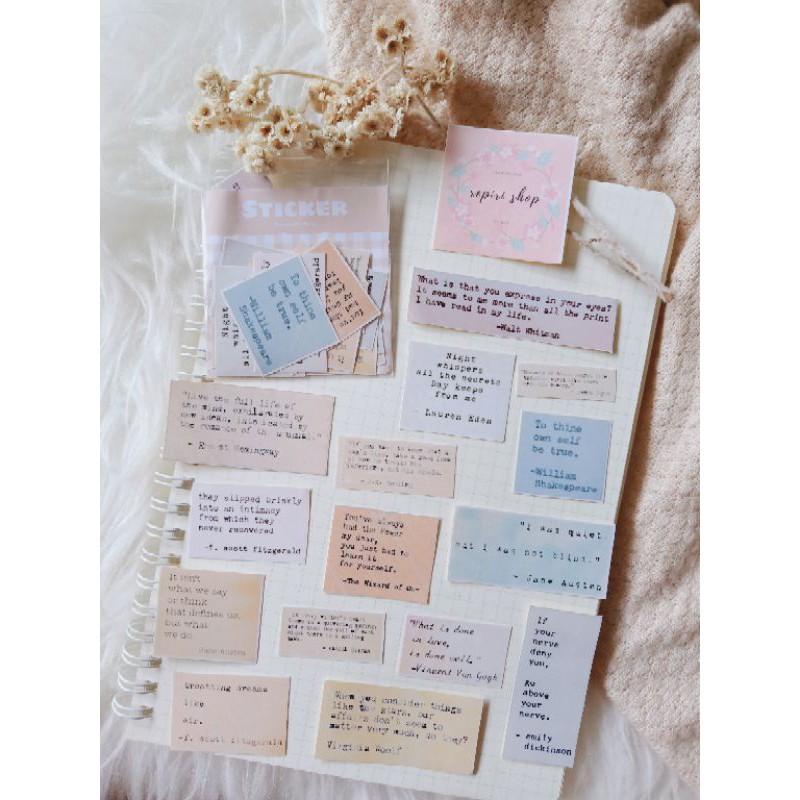 STICKER
To thine
own self
be true.
-William
Shakespeare
ropiri shop
What is that you express in your eyes?
It seems to me more than all the print
I have read in my life.
-Walt Whitman
Night
whispers
all the secrets
Day keeps
from me
- Lauren Eden
"Live the full life of
the mind, exhilarated by
new ideas, intoxicated by
the romance of the unusual."
- Hemingway
To thine
own self
be true.
-William
Shakespeare
they slipped briskly
into an intimacy
from which they
never recovered
-f. scott fitzgerald
You've always
had the Power
my dear,
you just had to
learn it
for yourself.
-The Wizard of Oz-
"I was quiet,
but I was not blind."
- Jane Austen
It isn't
what we say
or think
that defines us,
but what
we do.
Jane Austen
"What is done
in love,
is done well."
-Vincent Van Gogh
If
your
nerve
deny
you,
Go
above
your
nerve.
- emily
dickinson
breathing dreams
like
air.
-f. scott fitzgerald
When you consider things
like the stars, our
affairs don't seem to
matter very much, do they?
Virginia Woolf